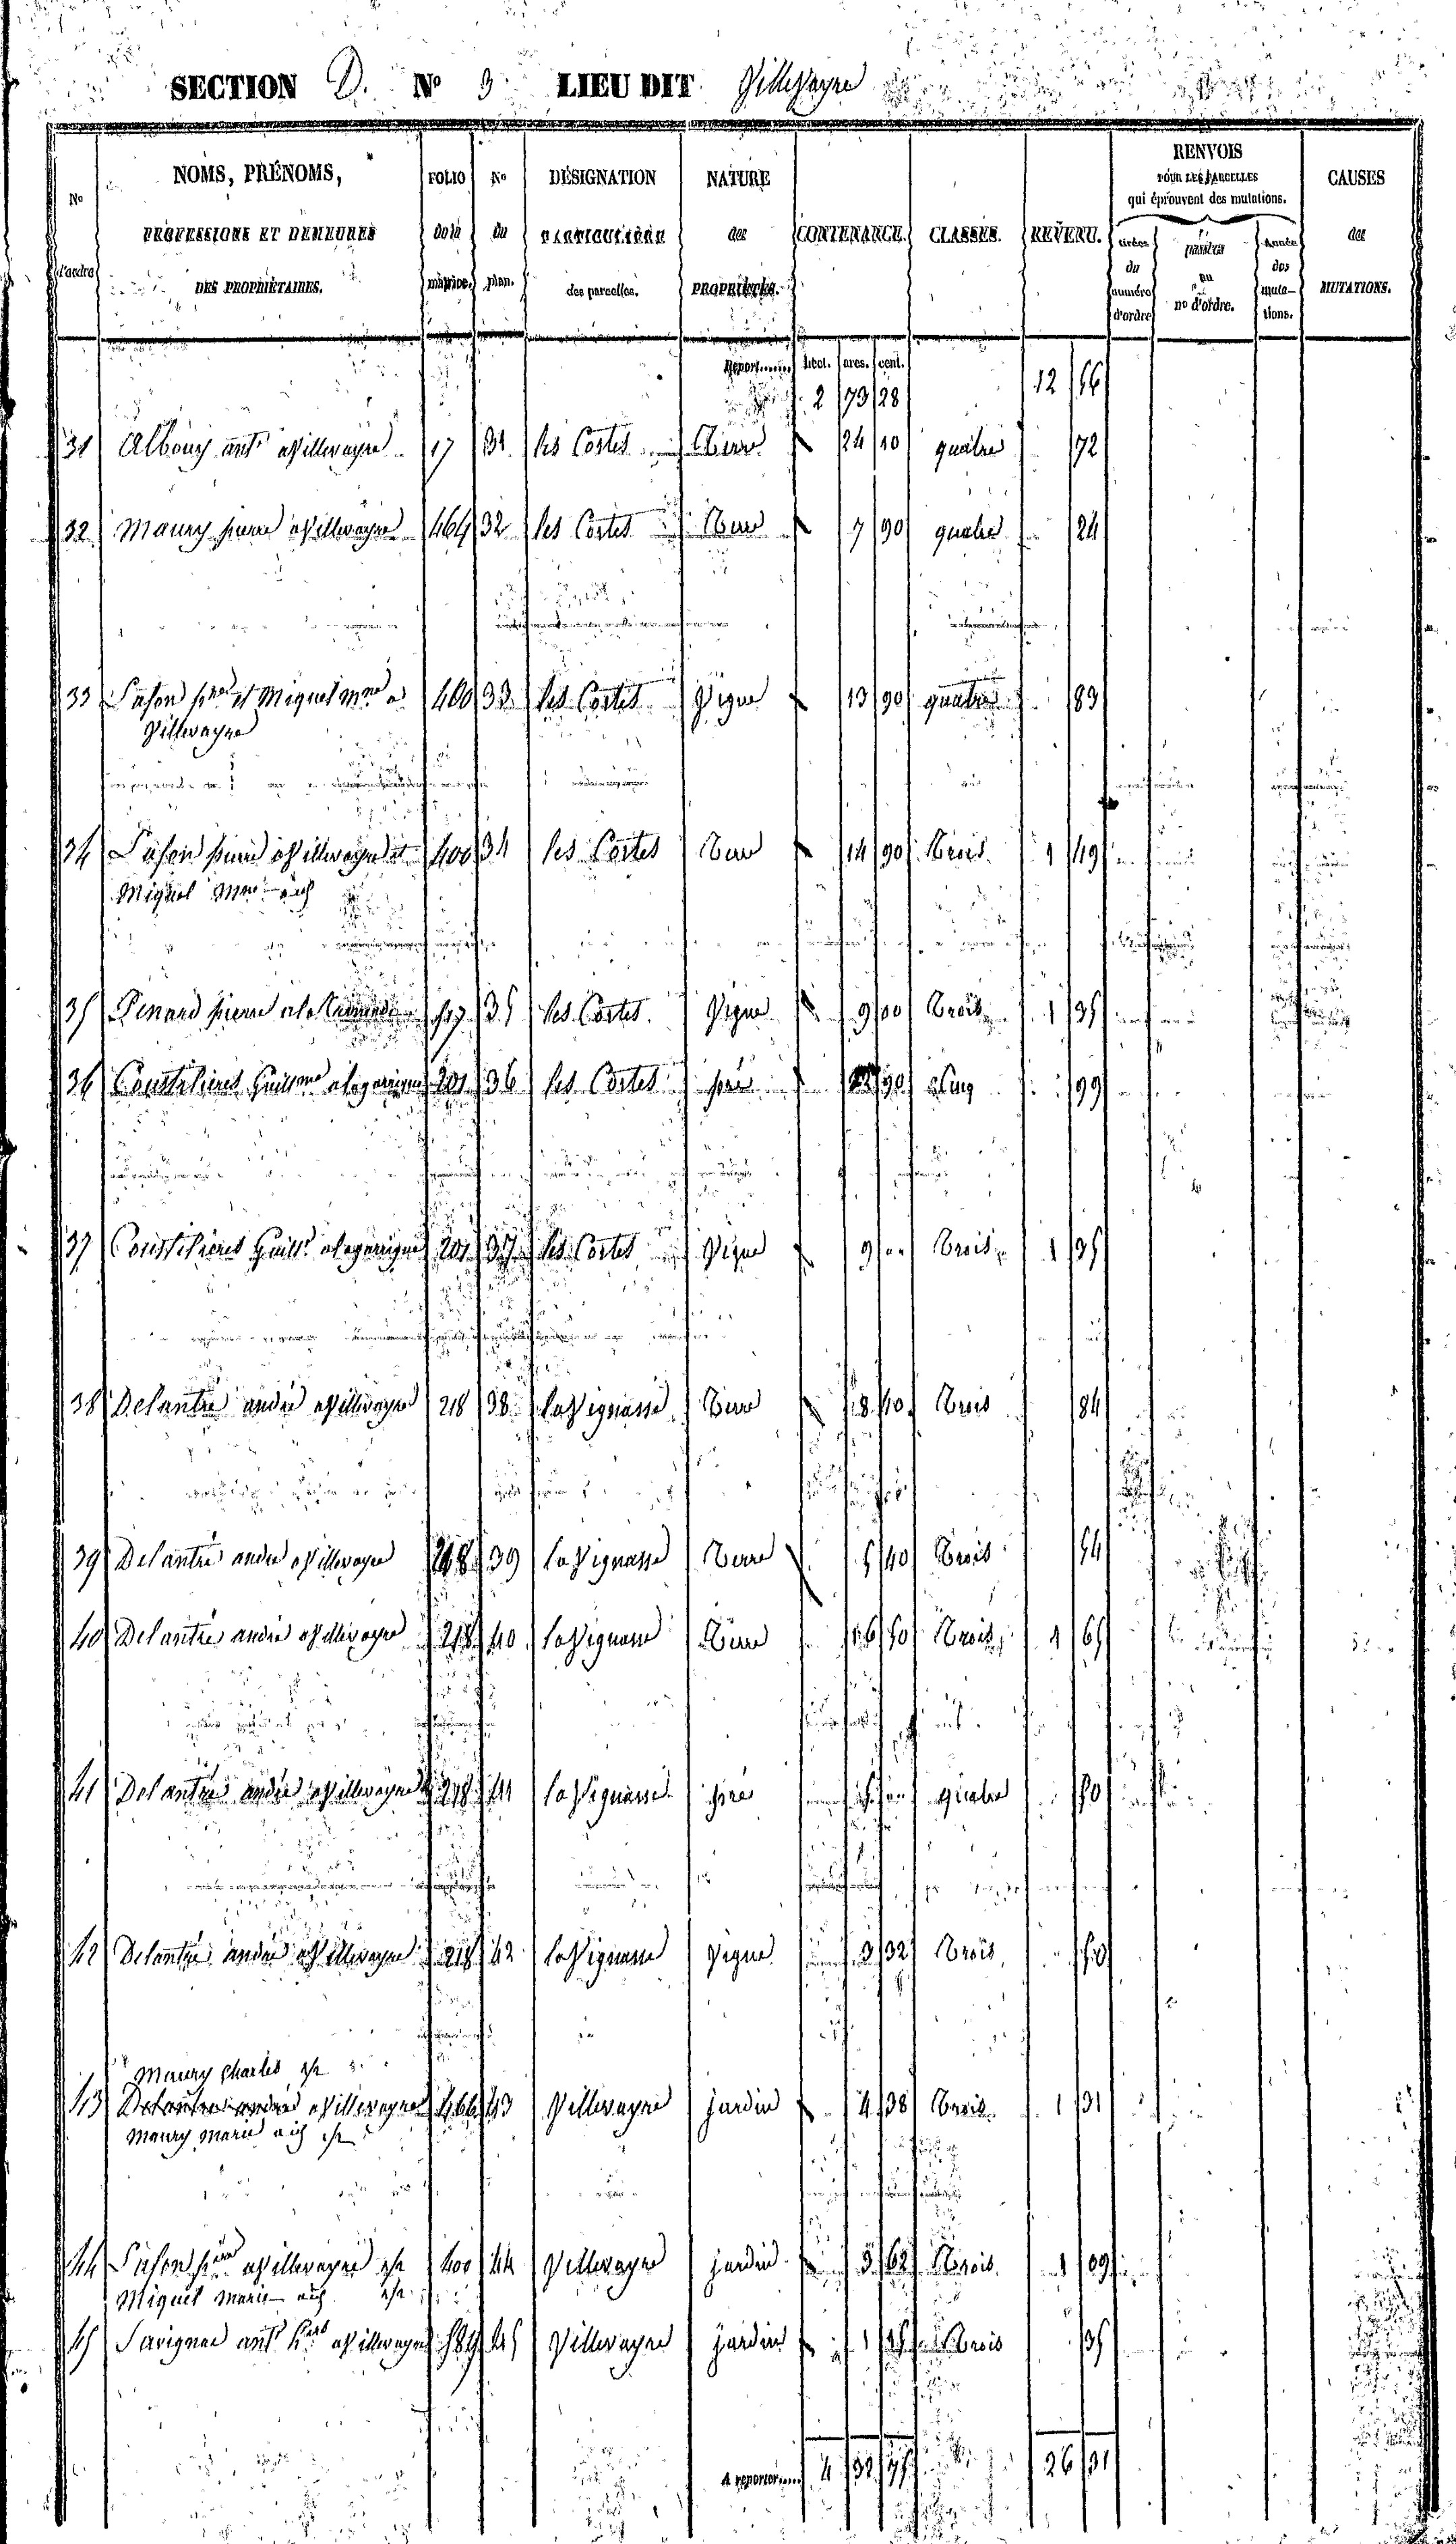 SECTION D. No 3 LIEU DIT Villevayre
No d'ordre
NOMS, PRÉNOMS, PROFESSIONS ET DEMEURES DES PROPRIÉTAIRES.
FOLIO de la matrice.
No du plan.
DÉSIGNATION PARTICULIÈRE des parcelles.
NATURE des PROPRIÉTÉS.
CONTENANCE.
CLASSES.
REVENU.
RENVOIS POUR LES PARCELLES qui éprouvent des mutations.
du numéro d'ordre
au no d'ordre.
Année des mutations.
CAUSES des MUTATIONS.
Report...... hect. ares. cent.
2 73 28 12 56
31 Albouy ant. a Villevayre 17 31 les Costes Terre 24 10 quatre 72
32 Maury pierre a Villevayre 464 32 les Costes Terre 7 90 quatre 24
33 et Miquel Mrie a 400 33 les Costes Vigne 13 90 quatre 83
Villevayre
34 pierre a Villevayre et 400 34 les Costes Terre 14 90 Trois 1 49
Miquel Mrie
35 pierre 35 les Costes Vigne 9 00 Trois 1 35
36 201 36 les Costes pré 90 cinq 99
37 201 37 les Costes Vigne 9 Trois 1 35
38 Delantre andré a Villevayre 218 38 la Vignasse Terre 8 40 Trois 84
39 Delantre andré a Villevayre 218 39 la Vignasse Terre 5 40 Trois 54
40 Delantre andré a Villevayre 218 40 la Vignasse Terre 16 50 Trois 1 65
41 Delantre andré a Villevayre 218 41 la Vignasse pré quatre 50
42 Delantre andré a Villevayre 218 42 la Vignasse Vigne 3 32 Trois 50
Maury Charles
43 Delantre andré a Villevayre 466 43 Villevayre jardin 4 38 Trois 1 31
Maury Marie
44 a Villevayre 400 44 Villevayre jardin 3 62 Trois 1 09
Miquel Marie
45 Savignac ant. a Villevayre 589 45 Villevayre jardin 1 15 Trois 35
A reporter..... 4 32 75 26 31